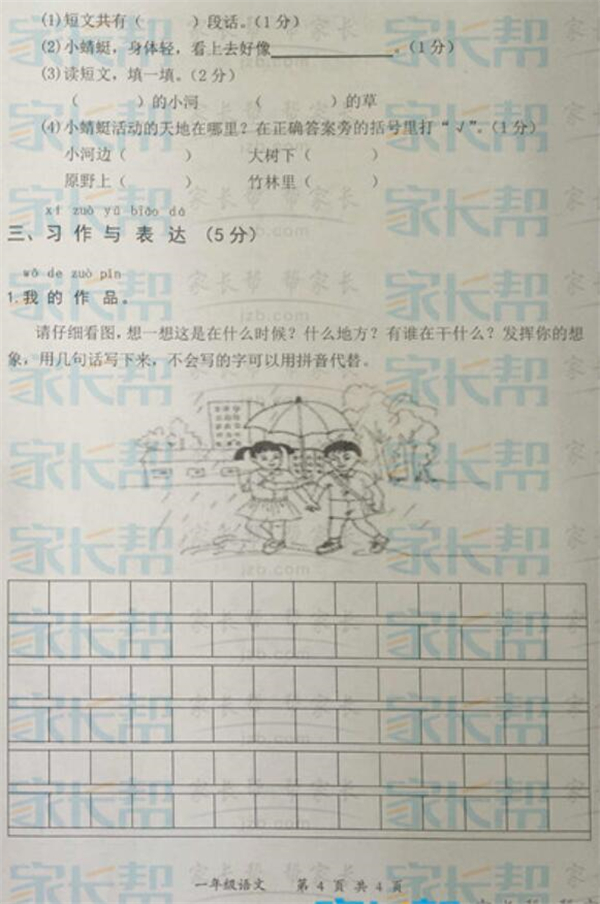 (1)短文共有(      )段话。(1分)
(2)小蜻蜓,身体轻,看上去好像____________。(1分)
(3)读短文,填一填。(2分)
(      )的小河      (      )的草
(4)小蜻蜓活动的天地在哪里?在正确答案旁的括号里打“√”。(1分)
小河边(      )      大树下(      )
原野上(      )      竹林里(      )
xí zuò yǔ biǎo dá
三、习作与表达(5分)
wǒ de zuò pǐn
1.我的作品。
请仔细看图,想一想这是在什么时候?什么地方?有谁在干什么?发挥你的想
象,用几句话写下来,不会写的字可以用拼音代替。
一年级语文      第4页共4页
家长帮
jzb.com